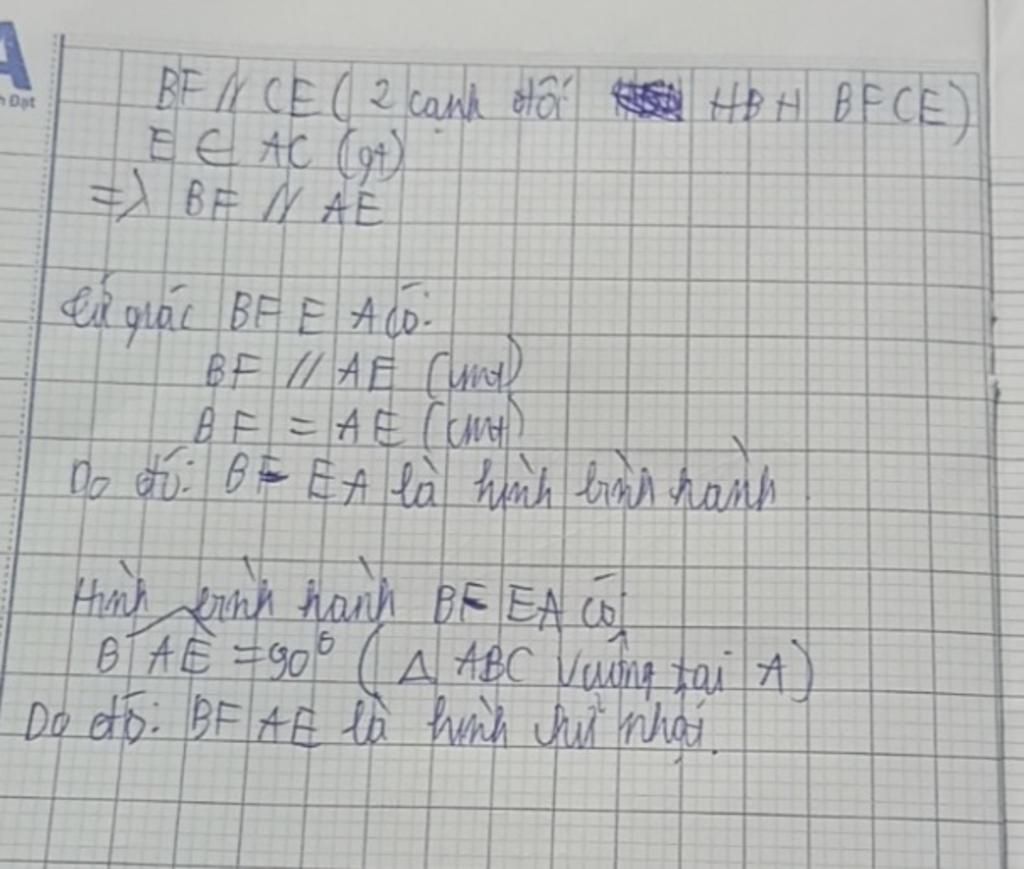 A
n Đạt
BF // CE ( 2 cạnh đối HBH BFCE)
E ∈ AC (gt)
=> BF // AE
tứ giác BFEA có:
BF // AE (cmt)
BF = AE (cmt)
Do đó: BFEA là hình bình hành
Hình bình hành BFEA có
BAE = 90° ( Δ ABC vuông tại A)
Do đó: BFAE là hình chữ nhật.